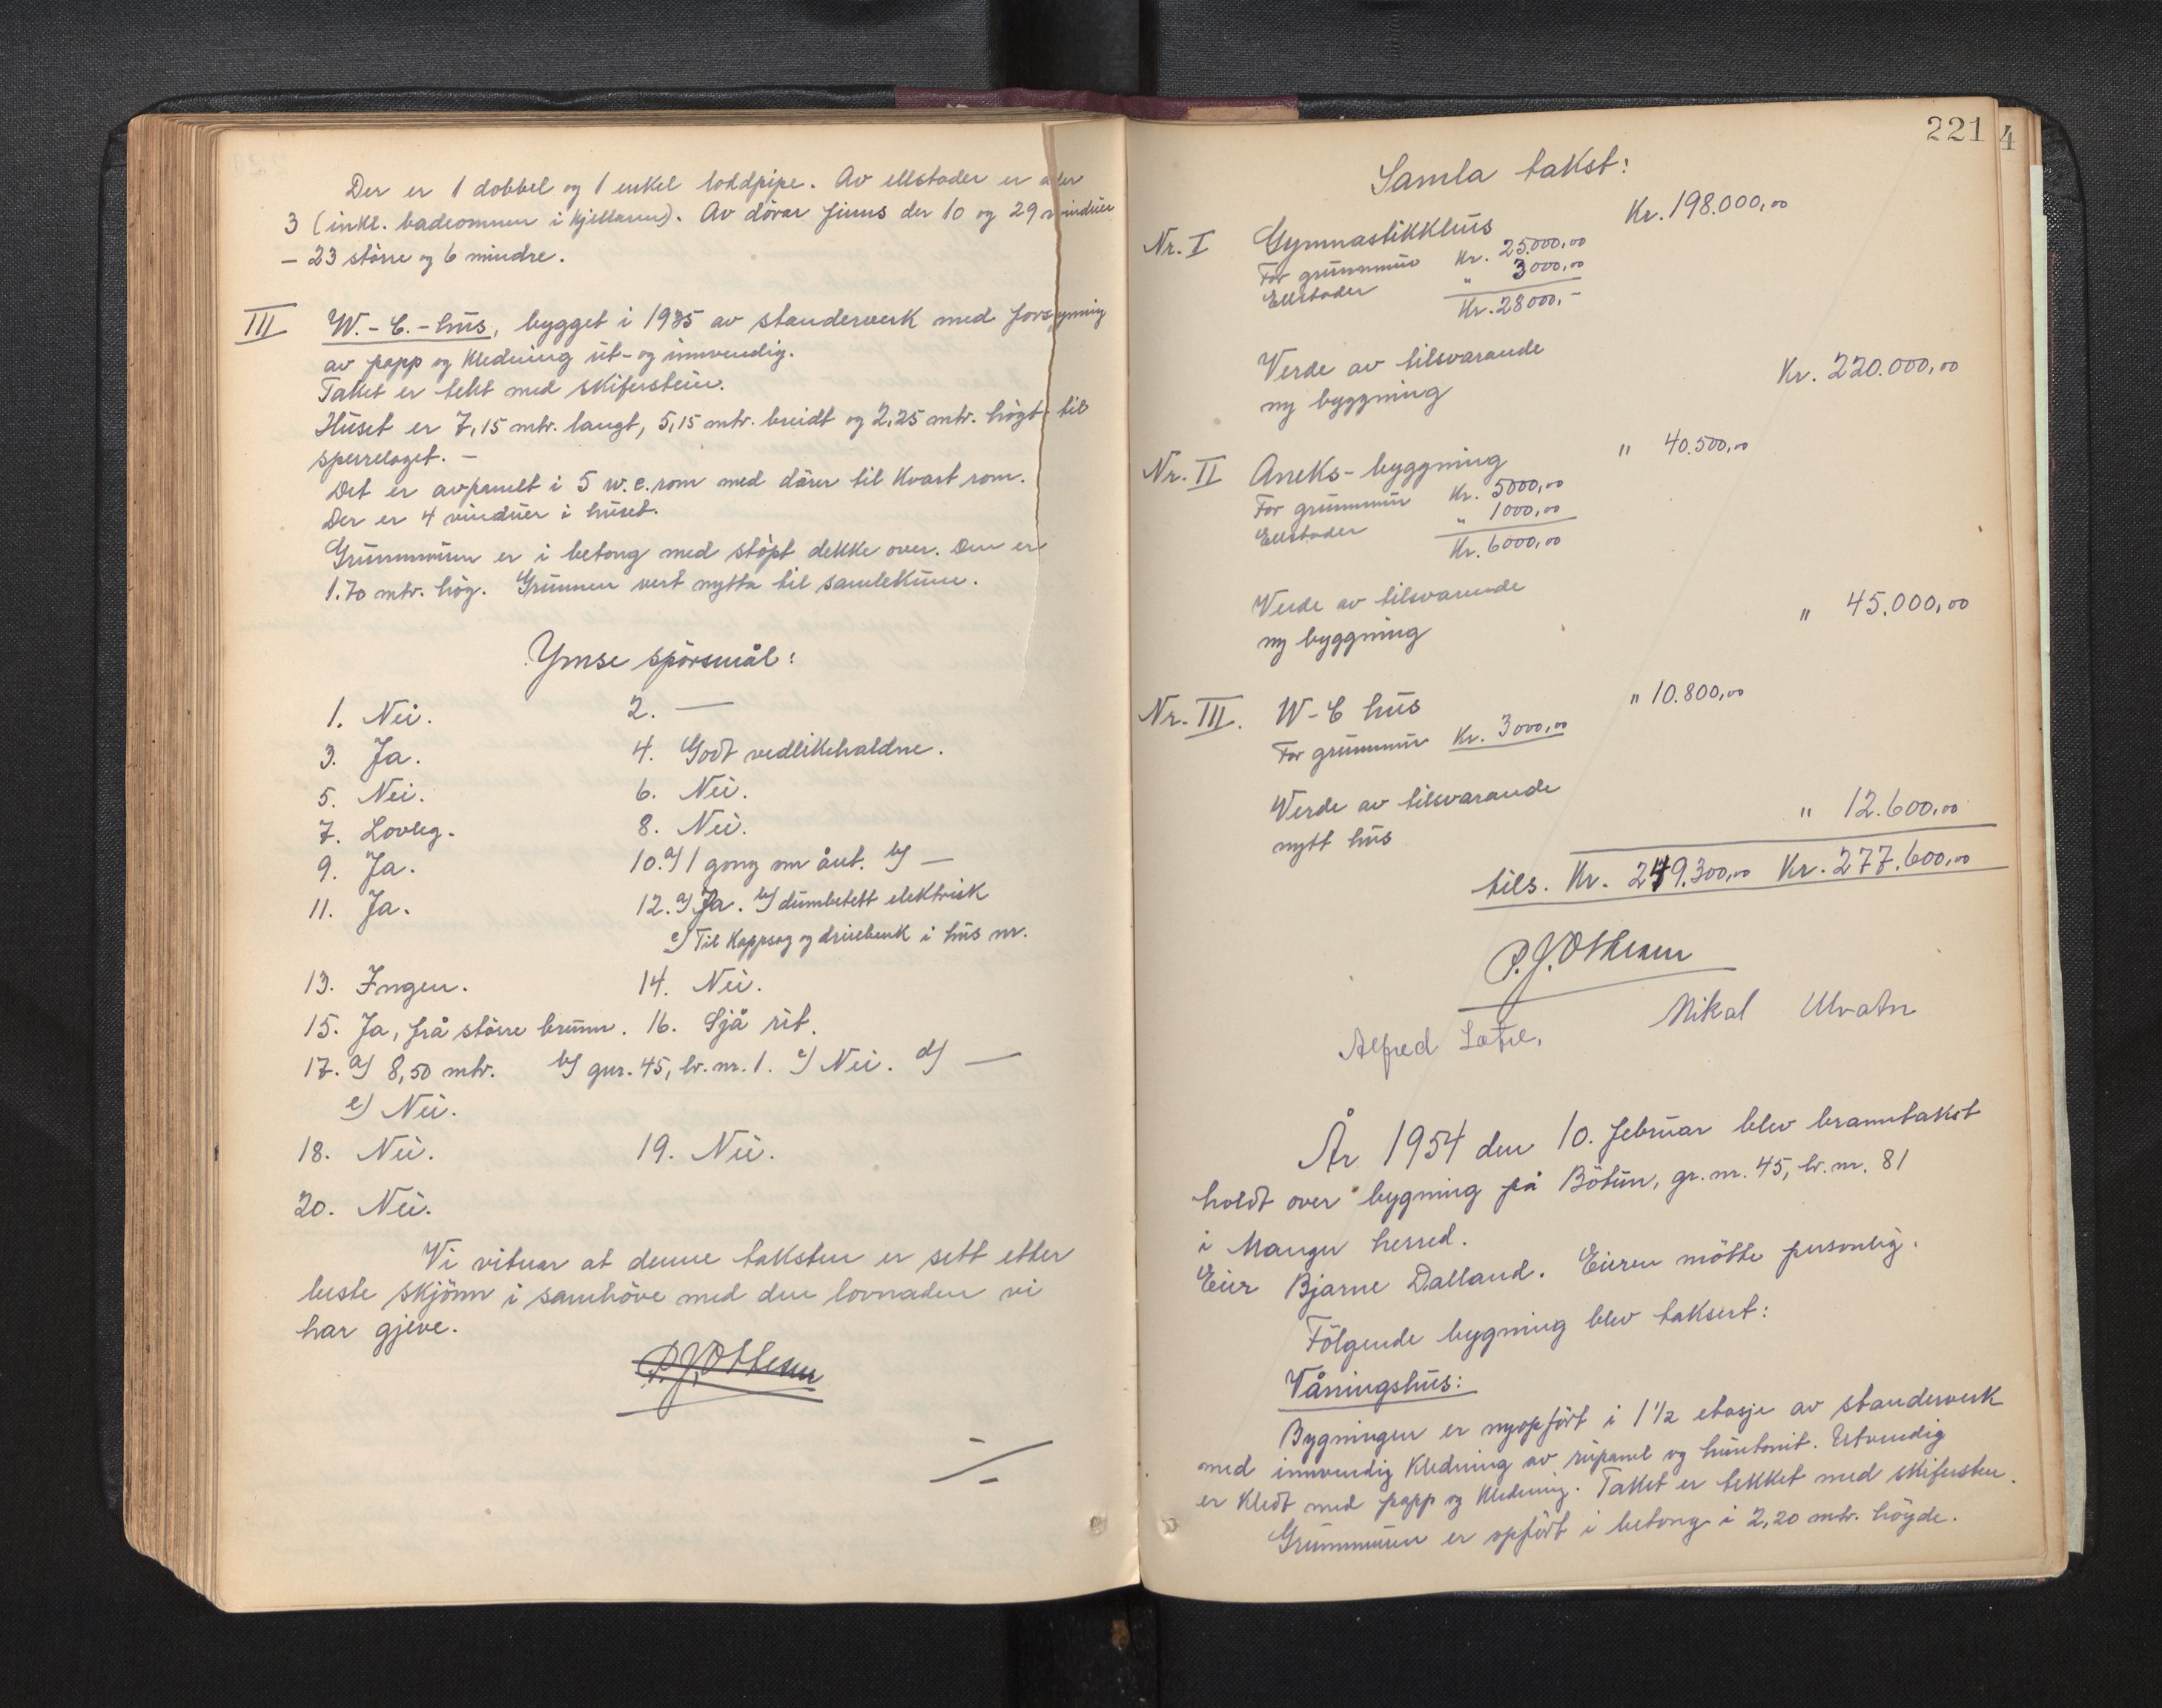 Der er 1 dobbel og 1 enkel loddpipe. Av ellstader er der
3 (inkl. badeomnen i kjellaren). Av dörar finns der 10 og 29 vinduer
– 23 större og 6 mindre.
III W.-C.-hus, bygget i 1935 av standerverk med forsyning
av papp og kledning ut- og innvendig.
Taket er tekt med skiferstein.
Huset er 7,15 mtr. langt, 5,15 mtr. breidt og 2,25 mtr. högt til
sperrelaget. –
Det er avpanelt i 5 w.c. rom med dörer til kvart rom.
Der er 4 vinduer i huset.
Grunnmuren er i betong med stöpt dekke over. Den er
1.70 mtr. hög. Grunnen vert nytta til samlekum.
Ymse spörsmål:
1. Nei. 2. —
3. Ja. 4. Godt vedlikehaldne.
5. Nei. 6. Nei.
7. Lovleg. 8. Nei.
9. Ja. 10. a/ 1 gong om året. b/ —
11. Ja. 12. a/ Ja. b/ elektrisk
c/ Til kappsag og i hus nr.
13. Ingen. 14. Nei.
15. Ja, frå större brunn. 16. Sjå rit.
17. a/ 8,50 mtr. b/ gnr. 45, br. nr. 1. c/ Nei. d/ —
e/ Nei.
18. Nei. 19. Nei.
20. Nei.
Vi vitnar at denne taksten er sett etter
beste skjönn i samhöve med den lovnaden vi
har gjeve.
P.J. Othesen
·/.
221 4
Samla takst:
Nr. I Gymnastikkhus Kr. 198.000,00
For grunnmur Kr. 25.000,00
Ellstader " 3000,00
Kr. 28000,-
Verde av tilsvarande
ny byggning Kr. 220.000,00
Nr. II Aneks-byggning " 40.500,00
For grunnmur Kr. 5000,00
Ellstader " 1000,00
Kr. 6000,00
Verde av tilsvarande
ny byggning " 45.000,00
Nr. III. W-C hus " 10.800,00
For grunnmur Kr. 3000,00
Verde av tilsvarande
nytt hus " 12.600,00
tils. Kr. 249.300,00 Kr. 277.600,00
P.J. Othesen
Mikal Ulvatn
Alfred
År 1954 den 10. februar blev branntakst
holdt over bygning på Bötun, gr. nr. 45, br. nr. 81
i Manger herred.
Eier Bjarne Dalland. Eieren mötte personlig.
Fölgende bygning blev taksert:
Våningshus:
Bygningen er nyopfört i 1 1/2 etasje av standerverk
med innvendig kledning av rupanel og huntonit. Utvendig
er kledt med papp og kledning. Taket er tekket med skifersten.
Grunnmuren er opfört i betong i 2,20 mtr. höyde.